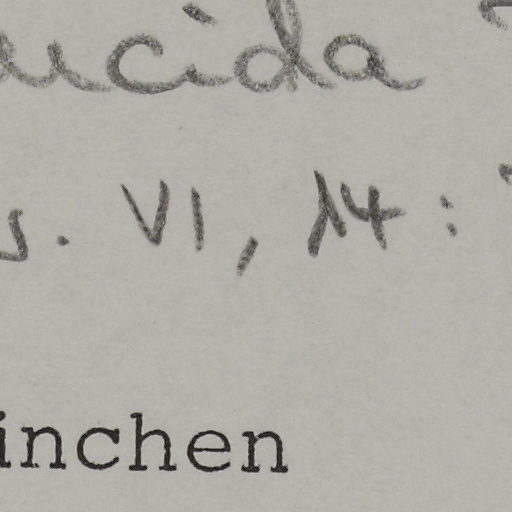 ucida
s. VI, 14:
inchen